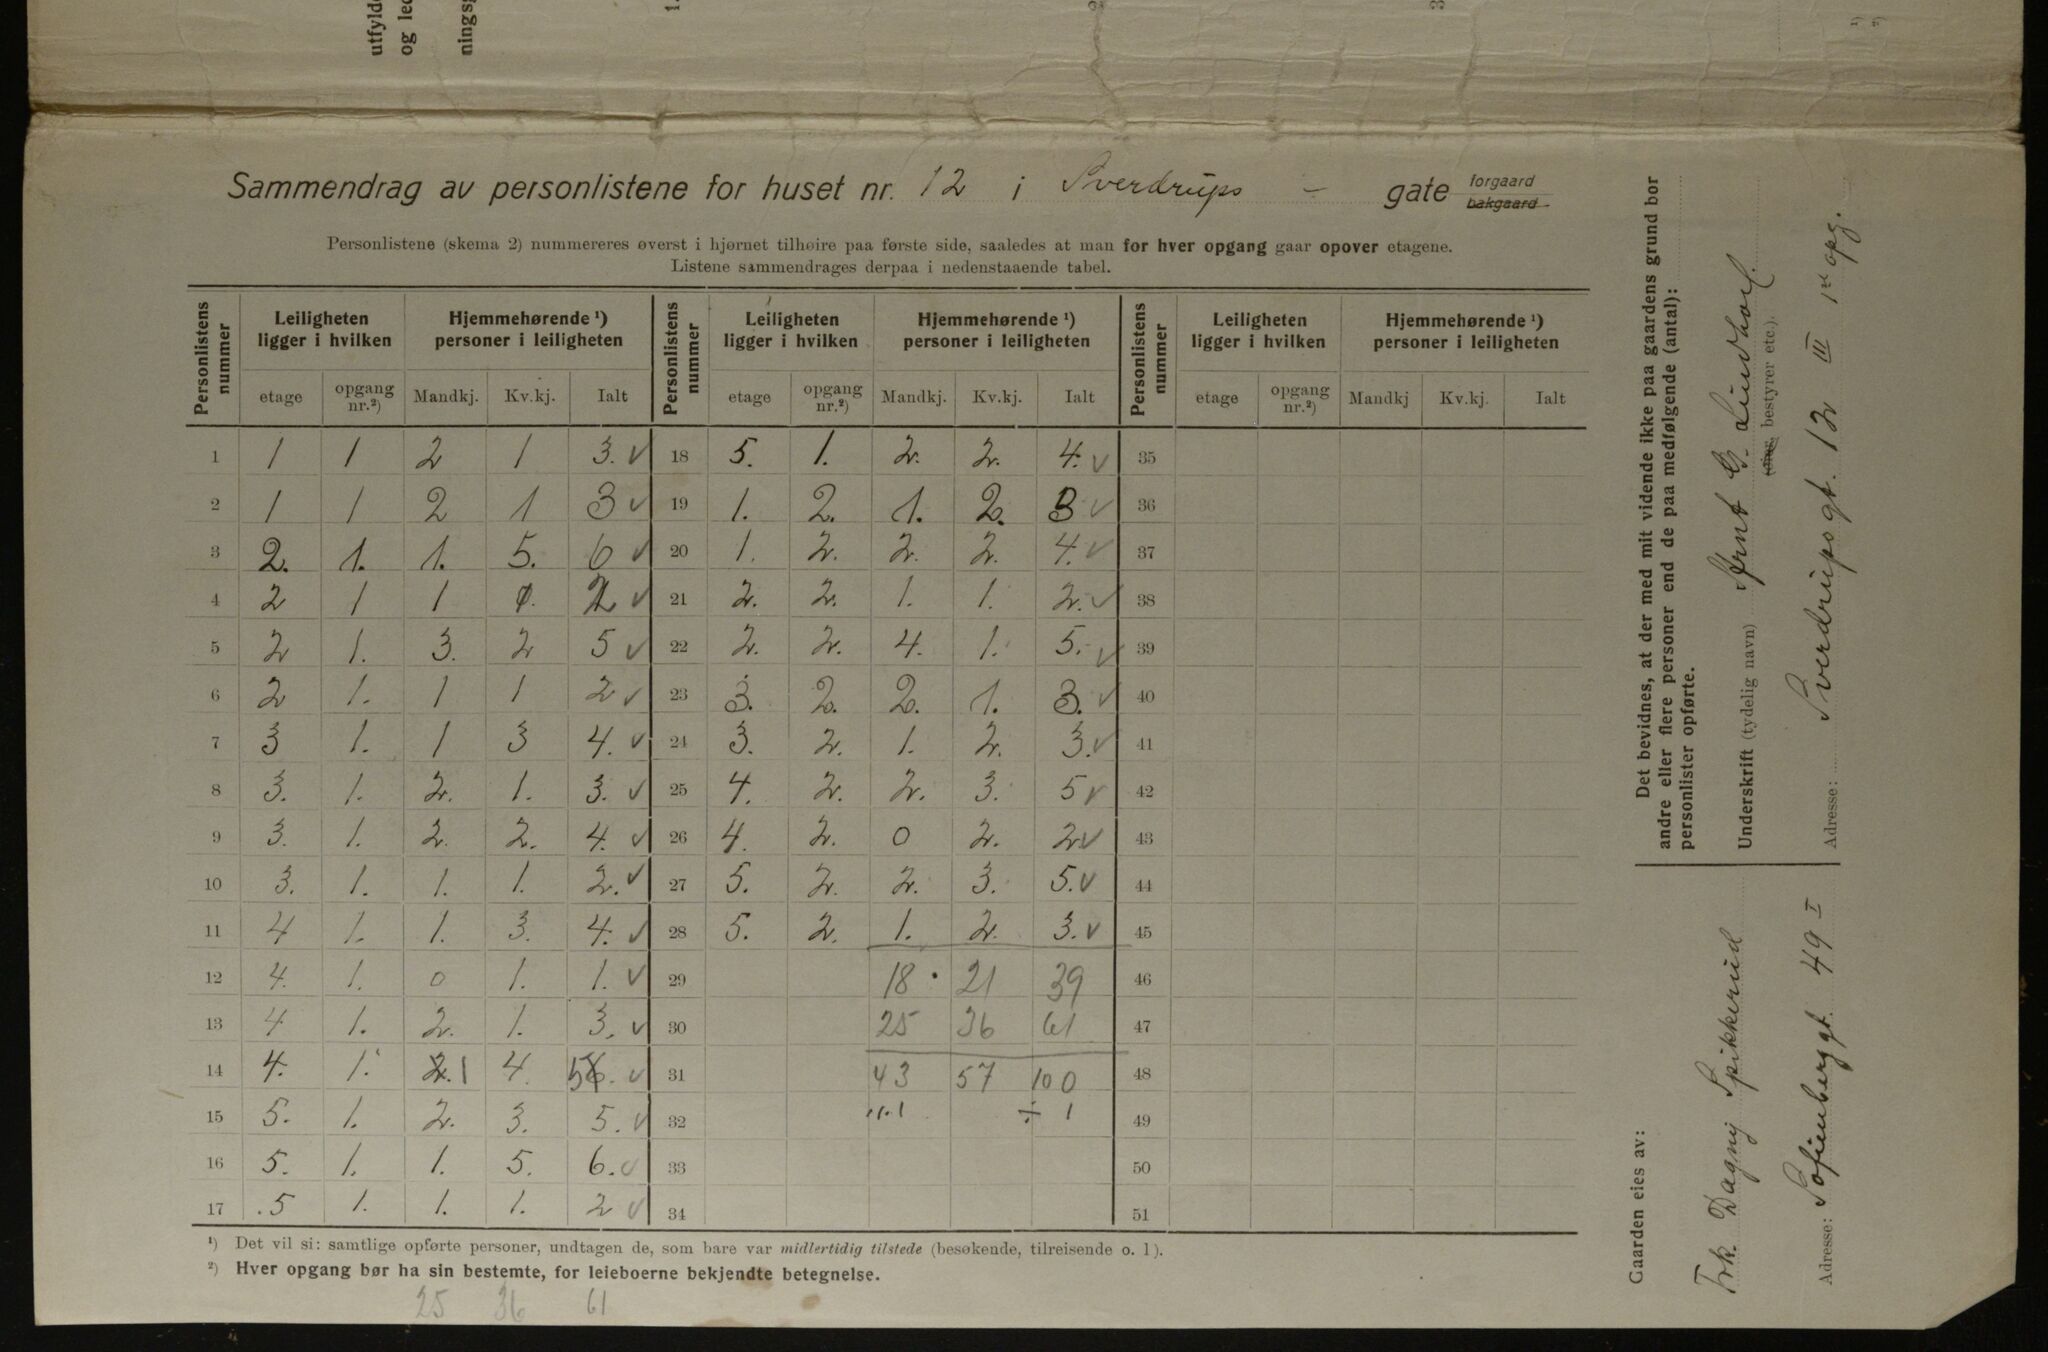 utfylde
og led
ningsg
1.
2
3
¹)
²)
Sammendrag av personlistene for huset nr. 12 i Sverdrups - gate forgaard bakgaard
Personlistene (skema 2) nummereres øverst i hjørnet tilhøire paa første side, saaledes at man for hver opgang gaar opover etagene.
Listene sammendrages derpaa i nedenstaaende tabel.
Personlistens nummer | Leiligheten ligger i hvilken | Hjemmehørende ¹) personer i leiligheten | Personlistens nummer | Leiligheten ligger i hvilken | Hjemmehørende ¹) personer i leiligheten | Personlistens nummer | Leiligheten ligger i hvilken | Hjemmehørende ¹) personer i leiligheten
etage | opgang nr.²) | Mandkj. | Kv.kj. | Ialt | etage | opgang nr.²) | Mandkj. | Kv.kj. | Ialt | etage | opgang nr.²) | Mandkj | Kv.kj. | Ialt
1 | 1 | 1 | 2 | 1 | 3. ✓ | 18 | 5. | 1. | 2. | 2. | 4. ✓ | 35
2 | 1 | 1 | 2 | 1 | 3 ✓ | 19 | 1. | 2. | 1. | 2. | 3 ✓ | 36
3 | 2. | 1. | 1. | 5. | 6 ✓ | 20 | 1. | 2. | 2. | 2. | 4. ✓ | 37
4 | 2 | 1 | 1 | | ✓ | 21 | 2. | 2. | 1. | 1. | 2. ✓ | 38
5 | 2 | 1. | 3. | 2 | 5 ✓ | 22 | 2. | 2. | 4. | 1. | 5. ✓ | 39
6 | 2 | 1. | 1 | 1 | 2 ✓ | 23 | 3. | 2. | 2. | 1. | 3. ✓ | 40
7 | 3 | 1. | 1 | 3 | 4. ✓ | 24 | 3. | 2. | 1. | 2. | 3. ✓ | 41
8 | 3. | 1. | 2. | 1. | 3. ✓ | 25 | 4. | 2. | 2. | 3. | 5 ✓ | 42
9 | 3. | 1. | 2. | 2. | 4. ✓ | 26 | 4. | 2. | 0 | 2. | 2 ✓ | 43
10 | 3. | 1. | 1. | 1. | 2. ✓ | 27 | 5. | 2. | 2. | 3. | 5. ✓ | 44
11 | 4 | 1. | 1. | 3. | 4. ✓ | 28 | 5. | 2. | 1. | 2. | 3. ✓ | 45
12 | 4. | 1. | 0 | 1. | 1. ✓ | 29 | | | 18 | 21 | 39 | 46
13 | 4 | 1. | 2. | 1. | 3. ✓ | 30 | | | 25 | 36 | 61 | 47
14 | 4. | 1. | 2. 1 | 4. | 5 6. ✓ | 31 | | | 43 | 57 | 100 | 48
15 | 5. | 1. | 2. | 3. | 5. ✓ | 32 | | | ".1 | | ÷ 1 | 49
16 | 5. | 1. | 1. | 5. | 6. ✓ | 33 | | | | | | 50
17 | . 5 | 1. | 1. | 1. | 2 ✓ | 34 | | | | | | 51
¹) Det vil si: samtlige opførte personer, undtagen de, som bare var midlertidig tilstede (besøkende, tilreisende o. l).
²) Hver opgang bør ha sin bestemte, for leieboerne bekjendte betegnelse.
25 36 61
Det bevidnes, at der med mit vidende ikke paa gaardens grund bor
andre eller flere personer end de paa medfølgende (antal):
personlister opførte.
Underskrift (tydelig navn) Arnt G. Lindholf.
(eier, bestyrer etc.).
Adresse: Sverdrupsgt. 12 III 1ste opg.
Gaarden eies av:
Frk. Dagny Spikkerud
Adresse: Sofienberggt. 49 I